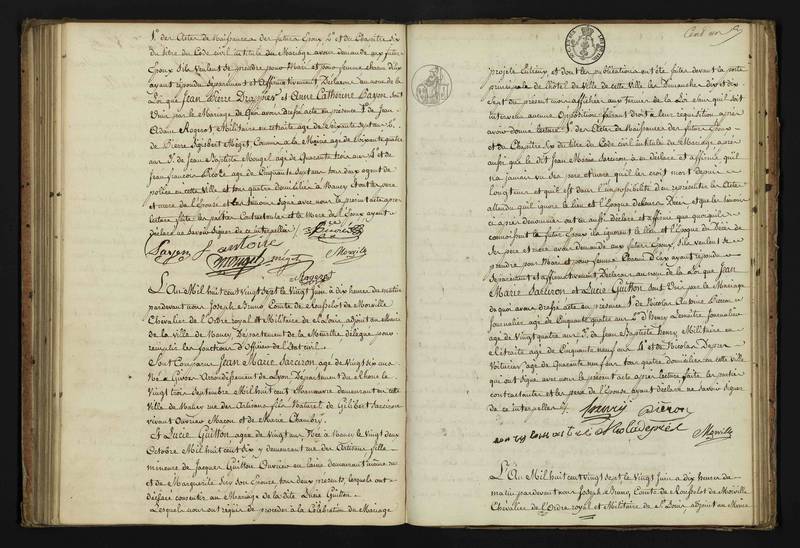 1°. des Actes de Naissances des futurs Epoux 2°. et du Chapitre Six
du titre du Code civil intitulé du Mariage avons demandé aux futurs
Epoux s'ils veulent se prendre pour Mari et pour femme chacun d'eux
ayant répondu séparément et affirmativement Déclarons au nom de la
Loi que Jean Pierre et Anne Catherine sont
Unis par le Mariage de quoi avons dressé acte en présence 1° de Jean
Adam Militaire en retraite âgé de soixante sept ans 2°.
de Pierre Sigisbert Miget, Commis à la Mairie âgé de soixante quatre
ans 3°. de Jean Baptiste Mougel âgé de Quarante trois ans 4°. et de
Jean françois âgé de Cinquante Sept ans tous deux agens de
police en cette Ville et tous quatre domiciliés à Nancy et ont les père
et mère de l'Epouse et les témoins signé avec nous le présent acte après
lecture faite les parties Contractantes et la Mère de l'Epoux ayant
déclaré ne savoir Signer de ce interpellés
Mougel miget Morville
L'An Mil huit cent vingt Sept le Vingt Juin à dix heures du matin
pardevant nous Joseph Bruno Comte de Morville
Chevalier de l'Ordre royal et Militaire de St. Louis, adjoint au Maire
de la Ville de Nancy Département de la Meurthe délégué pour
remplir les fonctions d'Officier de l'état civil.
Sont Comparus Jean Marie âgé de Vingt dix ans
Né à Givors Arrondissement de Lyon Département du Rhône le
vingt trois Septembre Mil huit cent demeurant en cette
Ville de Nancy rue des Artisans fils Naturel de Gilibert
vivant Ouvrier Macon et de Marie Chambry.
Et Lucie Guitton âgée de Vingt ans Née à Nancy le vingt deux
Octobre Mil huit cent Six y demeurant rue des Artisans fille
mineure de Jacques Guitton Ouvrier en laine demeurant même rue
et de Marguerite Son Epouse, tous deux présents, lesquels ont
déclaré consentir au Mariage de la dite Lucie Guitton.
Lesquels nous ont requis de procéder à la Célébration du Mariage
Cent un
projeté entr'eux et dont les publications ont été faites devant la porte
principale de l'hôtel de Ville de cette Ville les Dimanches dix et dix
Sept du présent mois affichées aux termes de la Loi sans qu'il soit
intervenu aucune Opposition faisant droit à leur réquisition après
avoir donné lecture 1°. des Actes de Naissances des futurs Epoux
et du Chapitre Six du titre du Code civil intitulé du Mariage, après
aussi que le dit Jean Marie a déclaré et affirmé qu'il
n'a jamais vu ses père et mère qu'il les croit morts depuis
longtems et qu'il est dans l'impossibilité d'en représenter les Actes
attendu qu'il ignore le lieu et l'Epoque de leurs Décès, et que les témoins
ci après dénommés ont eu aussi déclaré et affirmé que quoiqu'ils
connoissent le futur Epoux ils ignorent le lieu et l'Epoque du Décès de
ses père et mère avons demandé aux futurs Epoux s'ils veulent se
prendre pour Mari et pour femme Chacun d'eux ayant répondu
séparément et affirmativement Déclarons au nom de la Loi que Jean
Marie et Lucie Guitton sont Unis par le Mariage
de quoi avons dressé acte en présence 1°. de Nicolas Antoine
Journalier âgé de Cinquante quatre ans 2°. Lemaître Journalier
âgé de Vingt quatre ans 3°. de Jean Baptiste Henry Militaire en
retraite âgé de Cinquante neuf ans 4°. et de Nicolas Depied
Voiturier, âgé de Quarante Neuf ans tous quatre domiciliés en cette ville
qui ont signé avec nous le présent acte après lecture faite les parties
contractantes et les père de l'Epouse ayant déclaré ne savoir Signer
de ce interpellés
henry
nicolas Morville
L'An Mil huit cent vingt Sept le Vingt Juin à dix heures du
matin pardevant nous Joseph Bruno Comte de Morville
Chevalier de l'Ordre royal et Militaire de St. Louis adjoint au Maire